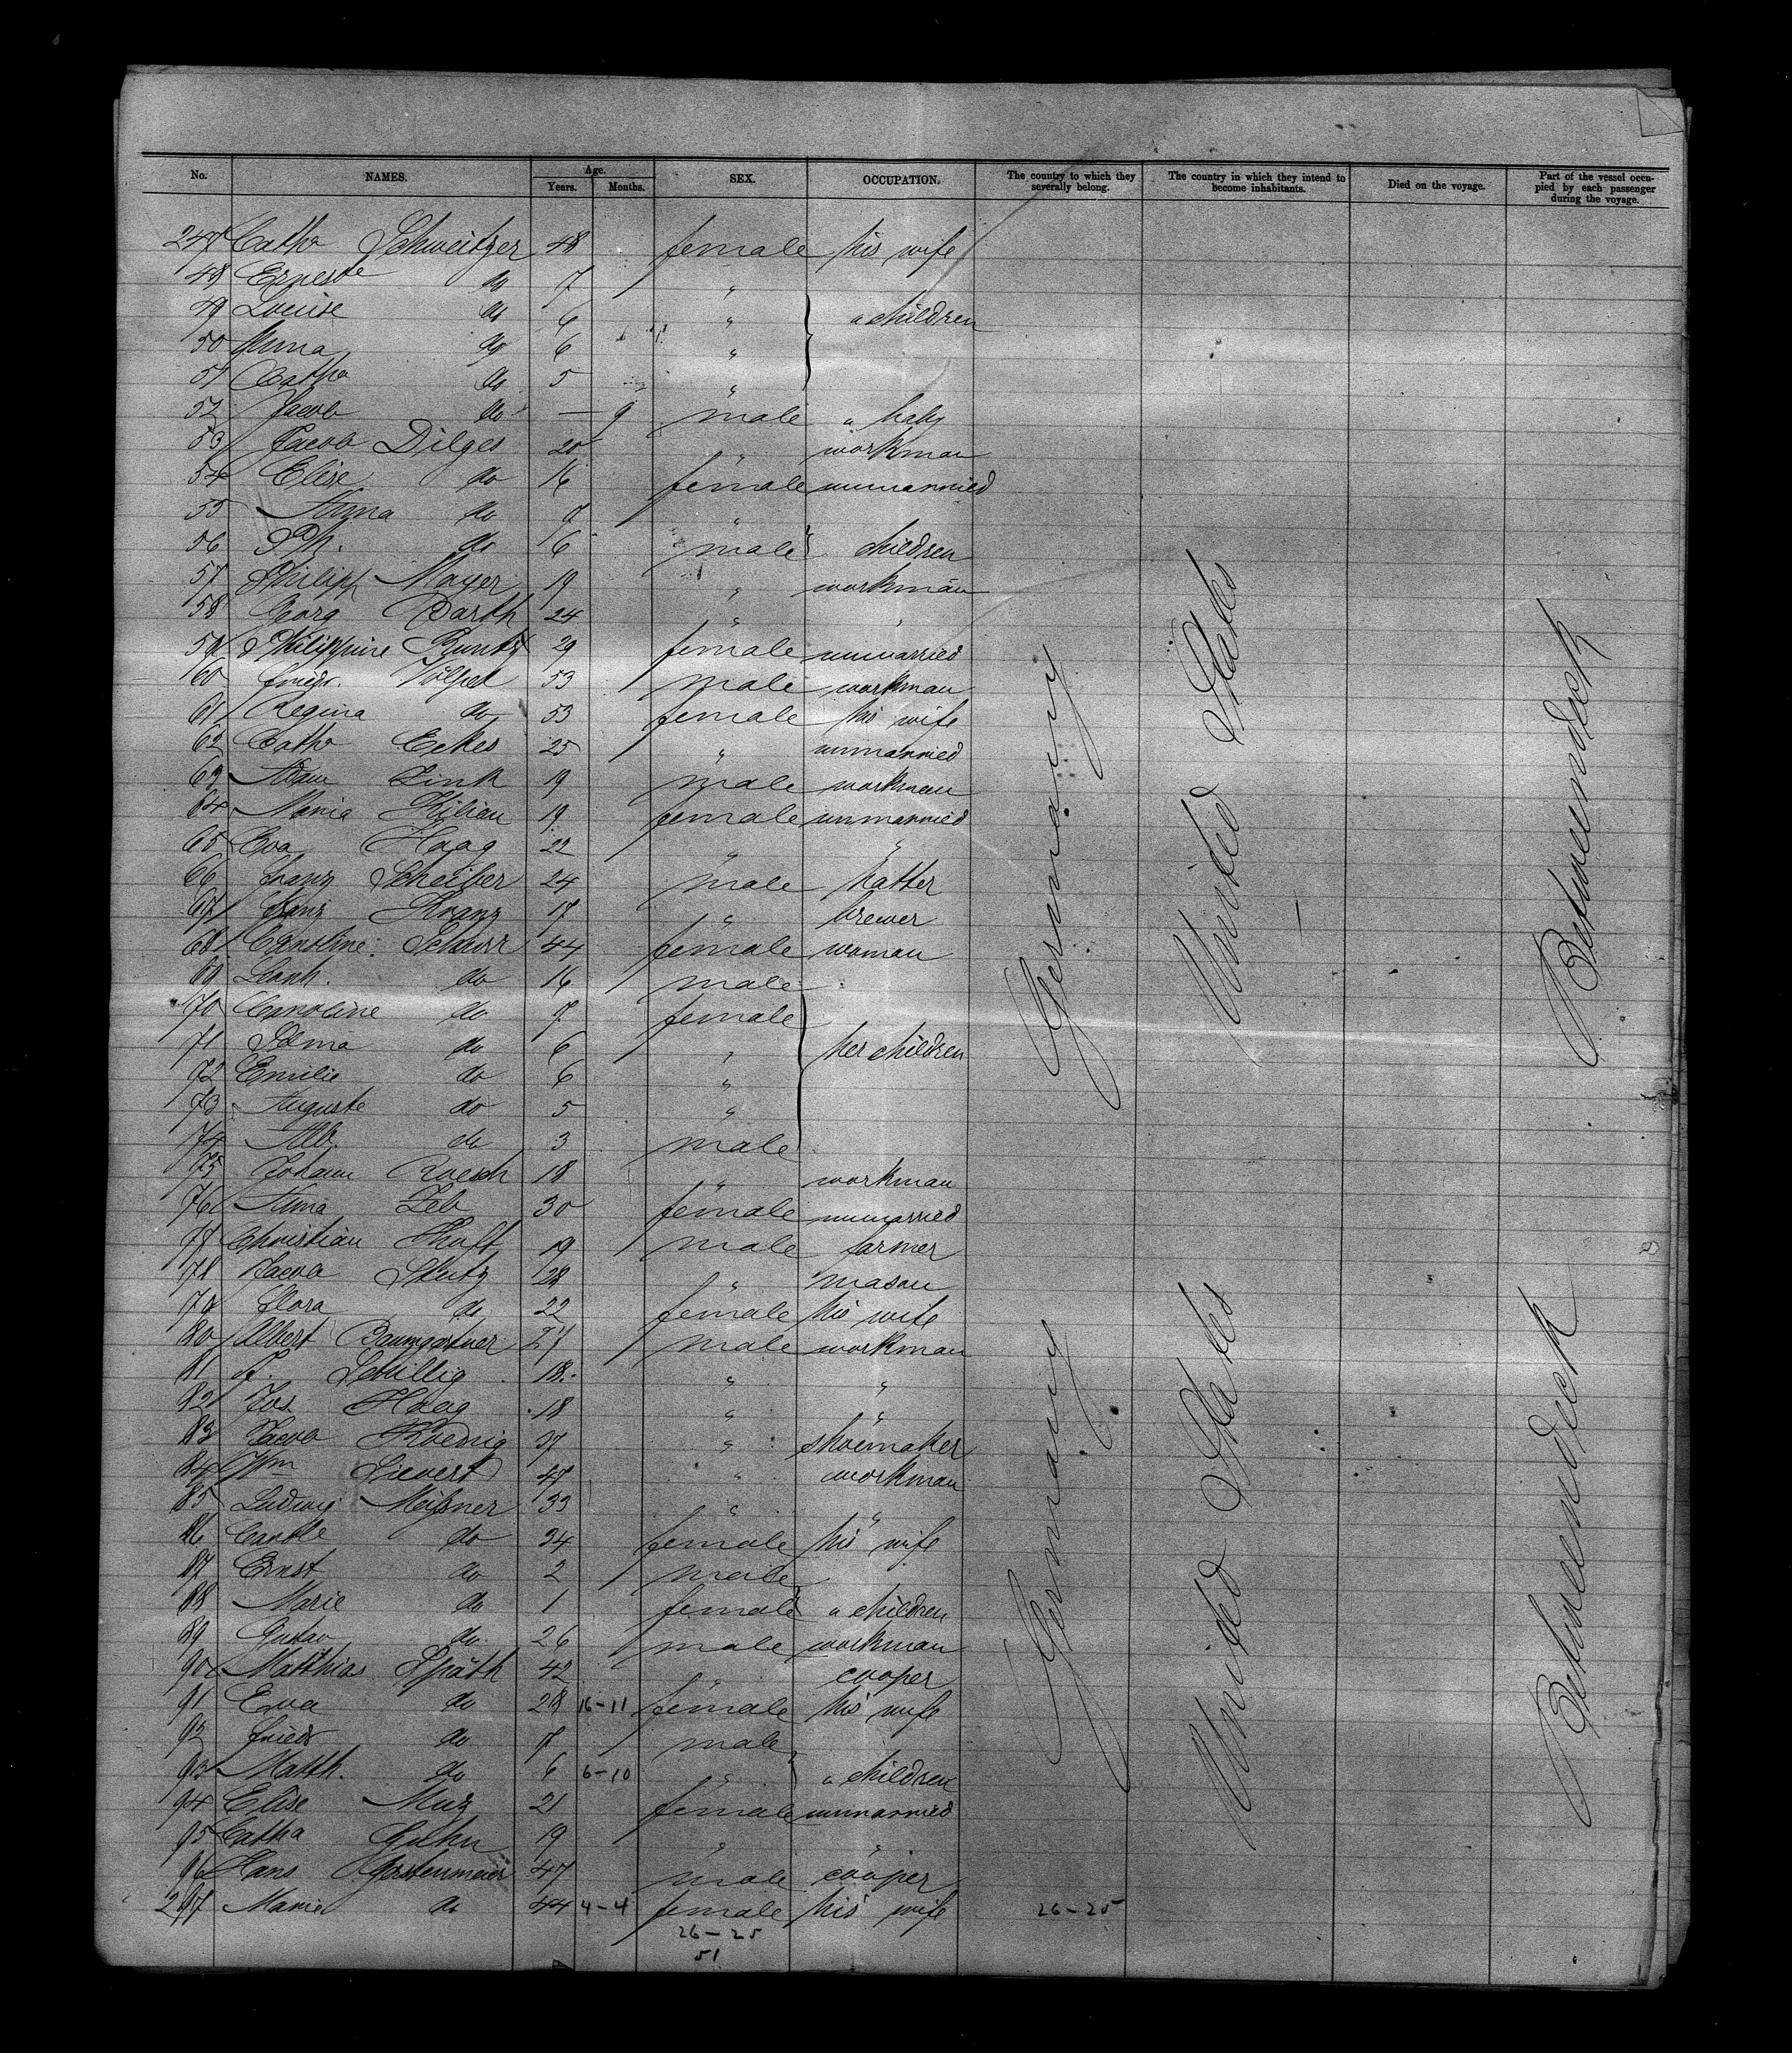 No. NAMES. Age. Years. Months. SEX. OCCUPATION. The country to which they severally belong. The country in which they intend to become inhabitants. Died on the voyage. Part of the vessel occupied by each passenger during the voyage.
247 Catha Schweitzer 48 female his wife
48 Erneste do 7 "
49 Louise do 6 " " children
50 Anna do 6 "
51 Catha do 5 "
52 Jacob do — 9 male " baby
53 Jacob Dilges 20 " workman
54 Elise do 16 female unmarried
55 Anna do 7 "
56 Ph. do 6 male children
57 Philipp Mayer 19 " workman
58 Georg Barth 24 " "
59 Philippine Runtz 29 female unmarried
60 Friedr. Völpel 53 male workman
61 Regina do 53 female his wife
62 Catha Eckes 25 " unmarried
63 Adam Zink 19 male workman
64 Maria Kilian 19 female unmarried
65 Eva Haag 22 " "
66 Franz Scheiber 24 male hatter
67 Franz Kranz 17 " brewer
68 Caroline Schurr 44 female woman
69 Leonh. do 16 male
70 Caroline do 7 female
71 do 6 " her children
72 Emilie do 6 "
73 Auguste do 5 "
74 Alb. do 3 male
75 Johann Roesch 18 " workman
76 Anna Zeb 30 female unmarried
77 Christian 19 male farmer
78 Jacob Stutz 28 " mason
79 Flora do 22 female his wife
80 Albert Baumgartner 21 male workman
81 Schillig 18 " "
82 Jos. Haag 18 " "
83 Jacob Koenig 37 " shoemaker
84 Wm Sievert 47 " workman
85 Ludwig Meißner 33 " "
86 Carole do 34 female his wife
87 Ernst do 2 male
88 Marie do 1 female " children
89 Gustav do 26 male workman
90 Matthias Späth 42 " cooper
91 Eva do 28 16-11 female his wife
92 Friedr do 7 male
93 Matth. do 6 6-10 " " children
94 Elise Muz 21 female unmarried
95 Catha Guhn 19 " "
96 Hans Gerstenmeier 47 male cooper
297 Marie do 44 4-4 female his wife 26-25
26-25
51
Germany United States Betweendeck
Germany United States Betweendeck